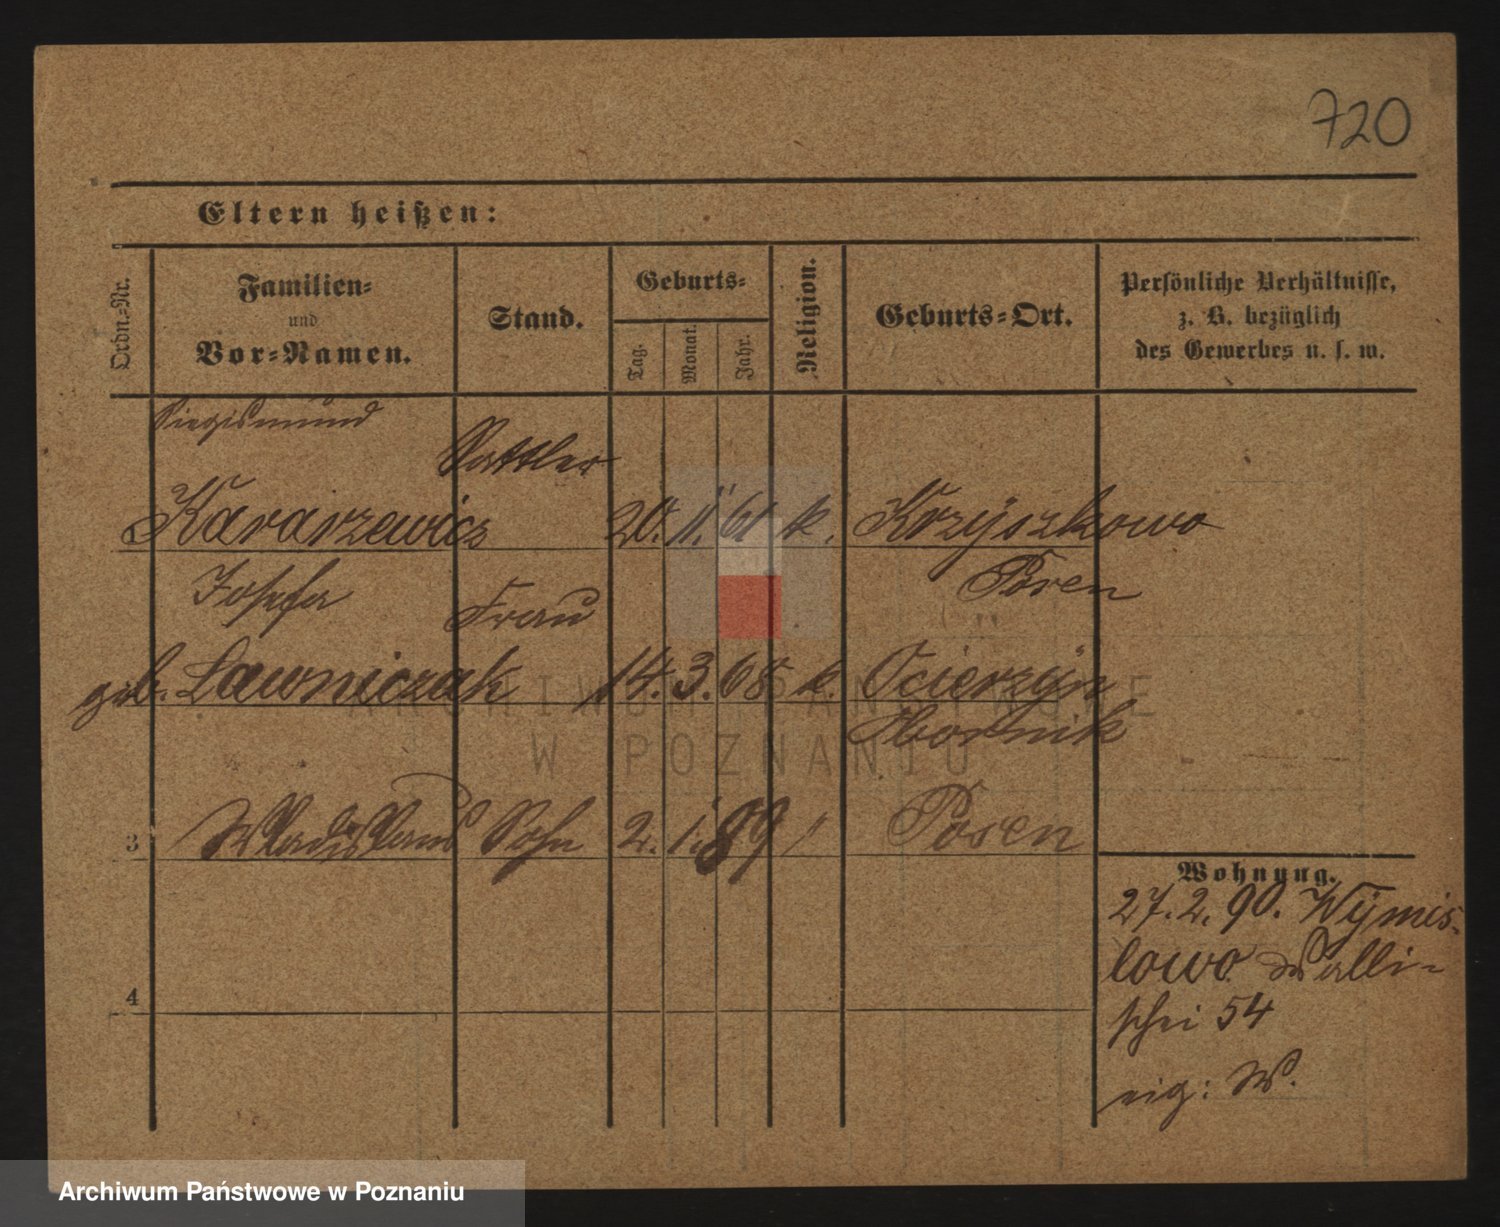 720
Eltern heißen:
Ordn.-Nr.
Familien-
und
Vor-Namen.
Stand.
Geburts-
Tag.
Monat.
Jahr.
Religion.
Geburts-Ort.
Persönliche Verhältnisse,
z. B. bezüglich
des Gewerbes u. s. w.
Siegismund
Sattler
Kararzewicz 20. 11. 61 k. Krzyszkowo
Posen
Josefa
Frau
geb. Lawniczak 14. 3. 68 k. Ocierzyn
Obornik
3 Wladislaus Sohn 2. 1. 89 " Posen
Wohnung.
27. 2. 90. Wymis-
lowo Walli-
schei 54
eig: W.
4
ARCHIWUM PAŃSTWOWE
W POZNANIU
Archiwum Państwowe w Poznaniu